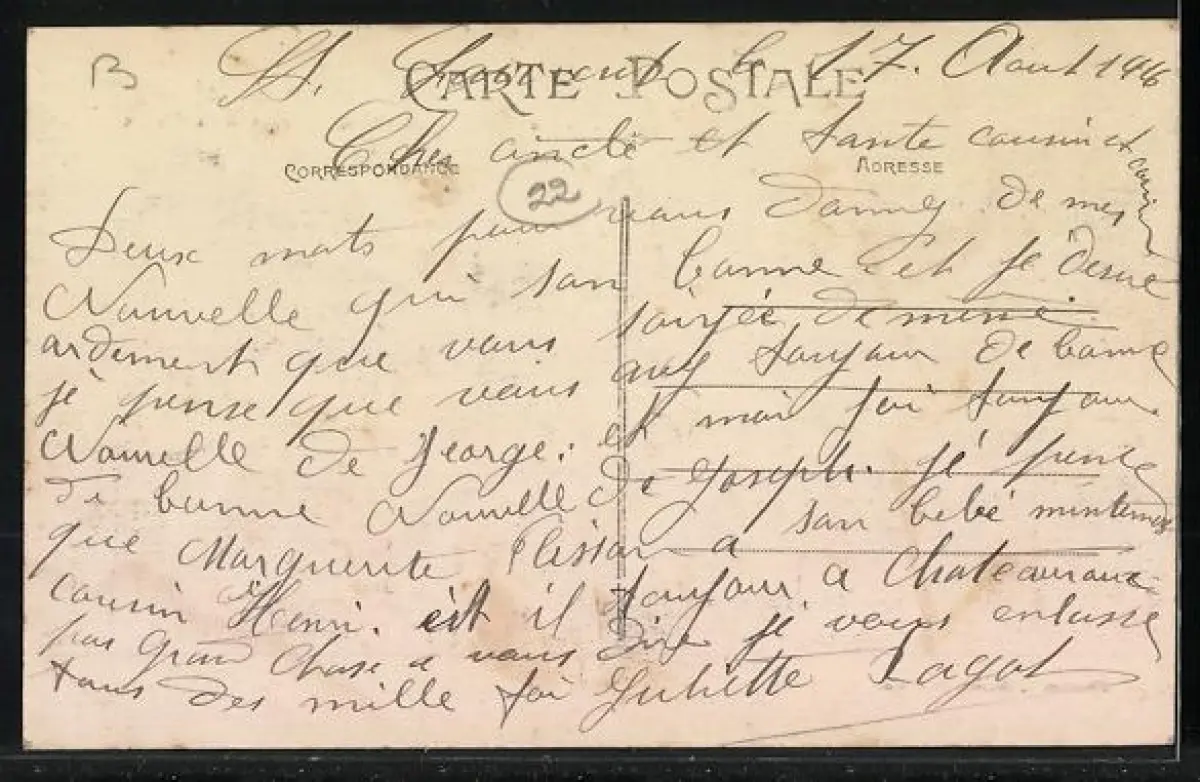 B
St. Laurent le 17. Aout 1916
CARTE POSTALE
Cher oncle et tante cousin et cousin
CORRESPONDANCE
ADRESSE
22
Deux mots pour vous donnes de mes
Nouvelle qui son bonne et je desire
ardement que vous soiyée de même
je pense que vous avez toujour de bonne
Nouvelle de George. et moi j'ai toujour
de bonne Nouvelle de Joseph. je pense
que Marguerite Plisson a son bebé mintenent
cousin Henri. est il toujour a Chateauroux
pas grand chose a vous dire je vous enbasse
tous des mille foi Juliette Pagot